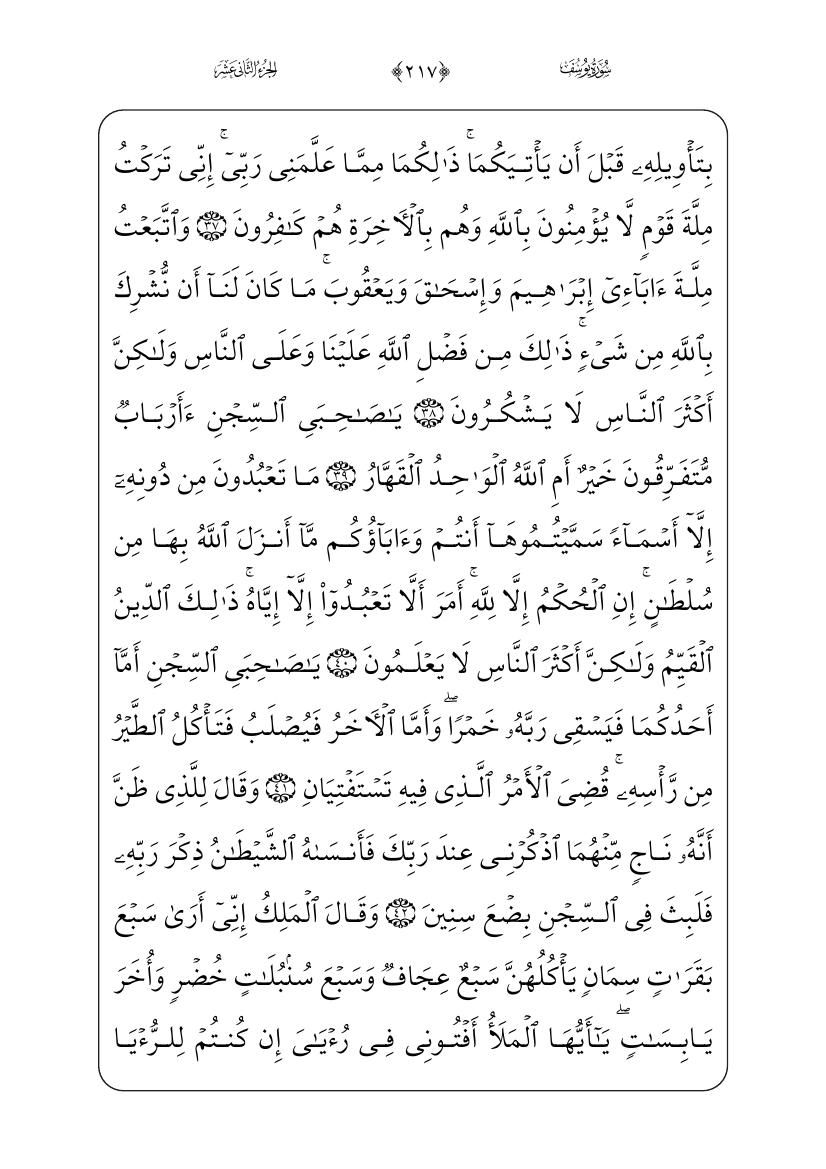 سُورَةُ يُوسُفَ ﴿٢١٧﴾ الجُزءُ الثَّانِي عَشَرَ
بِتَأۡوِيلِهِۦ قَبۡلَ أَن يَأۡتِيَكُمَاۚ ذَٰلِكُمَا مِمَّا عَلَّمَنِي رَبِّيٓۚ إِنِّي تَرَكۡتُ
مِلَّةَ قَوۡمٖ لَّا يُؤۡمِنُونَ بِٱللَّهِ وَهُم بِٱلۡأٓخِرَةِ هُمۡ كَٰفِرُونَ ٣٧ وَٱتَّبَعۡتُ
مِلَّةَ ءَابَآءِيٓ إِبۡرَٰهِيمَ وَإِسۡحَٰقَ وَيَعۡقُوبَۚ مَا كَانَ لَنَآ أَن نُّشۡرِكَ
بِٱللَّهِ مِن شَيۡءٖۚ ذَٰلِكَ مِن فَضۡلِ ٱللَّهِ عَلَيۡنَا وَعَلَى ٱلنَّاسِ وَلَٰكِنَّ
أَكۡثَرَ ٱلنَّاسِ لَا يَشۡكُرُونَ ٣٨ يَٰصَٰحِبَيِ ٱلسِّجۡنِ ءَأَرۡبَابٞ
مُّتَفَرِّقُونَ خَيۡرٌ أَمِ ٱللَّهُ ٱلۡوَٰحِدُ ٱلۡقَهَّارُ ٣٩ مَا تَعۡبُدُونَ مِن دُونِهِۦٓ
إِلَّآ أَسۡمَآءٗ سَمَّيۡتُمُوهَآ أَنتُمۡ وَءَابَآؤُكُم مَّآ أَنزَلَ ٱللَّهُ بِهَا مِن
سُلۡطَٰنٍۚ إِنِ ٱلۡحُكۡمُ إِلَّا لِلَّهِۚ أَمَرَ أَلَّا تَعۡبُدُوٓاْ إِلَّآ إِيَّاهُۚ ذَٰلِكَ ٱلدِّينُ
ٱلۡقَيِّمُ وَلَٰكِنَّ أَكۡثَرَ ٱلنَّاسِ لَا يَعۡلَمُونَ ٤٠ يَٰصَٰحِبَيِ ٱلسِّجۡنِ أَمَّآ
أَحَدُكُمَا فَيَسۡقِي رَبَّهُۥ خَمۡرٗاۖ وَأَمَّا ٱلۡأٓخَرُ فَيُصۡلَبُ فَتَأۡكُلُ ٱلطَّيۡرُ
مِن رَّأۡسِهِۦۚ قُضِيَ ٱلۡأَمۡرُ ٱلَّذِي فِيهِ تَسۡتَفۡتِيَانِ ٤١ وَقَالَ لِلَّذِي ظَنَّ
أَنَّهُۥ نَاجٖ مِّنۡهُمَا ٱذۡكُرۡنِي عِندَ رَبِّكَ فَأَنسَىٰهُ ٱلشَّيۡطَٰنُ ذِكۡرَ رَبِّهِۦ
فَلَبِثَ فِي ٱلسِّجۡنِ بِضۡعَ سِنِينَ ٤٢ وَقَالَ ٱلۡمَلِكُ إِنِّيٓ أَرَىٰ سَبۡعَ
بَقَرَٰتٖ سِمَانٖ يَأۡكُلُهُنَّ سَبۡعٌ عِجَافٞ وَسَبۡعَ سُنۢبُلَٰتٍ خُضۡرٖ وَأُخَرَ
يَابِسَٰتٖۖ يَٰٓأَيُّهَا ٱلۡمَلَأُ أَفۡتُونِي فِي رُءۡيَٰيَ إِن كُنتُمۡ لِلرُّءۡيَا